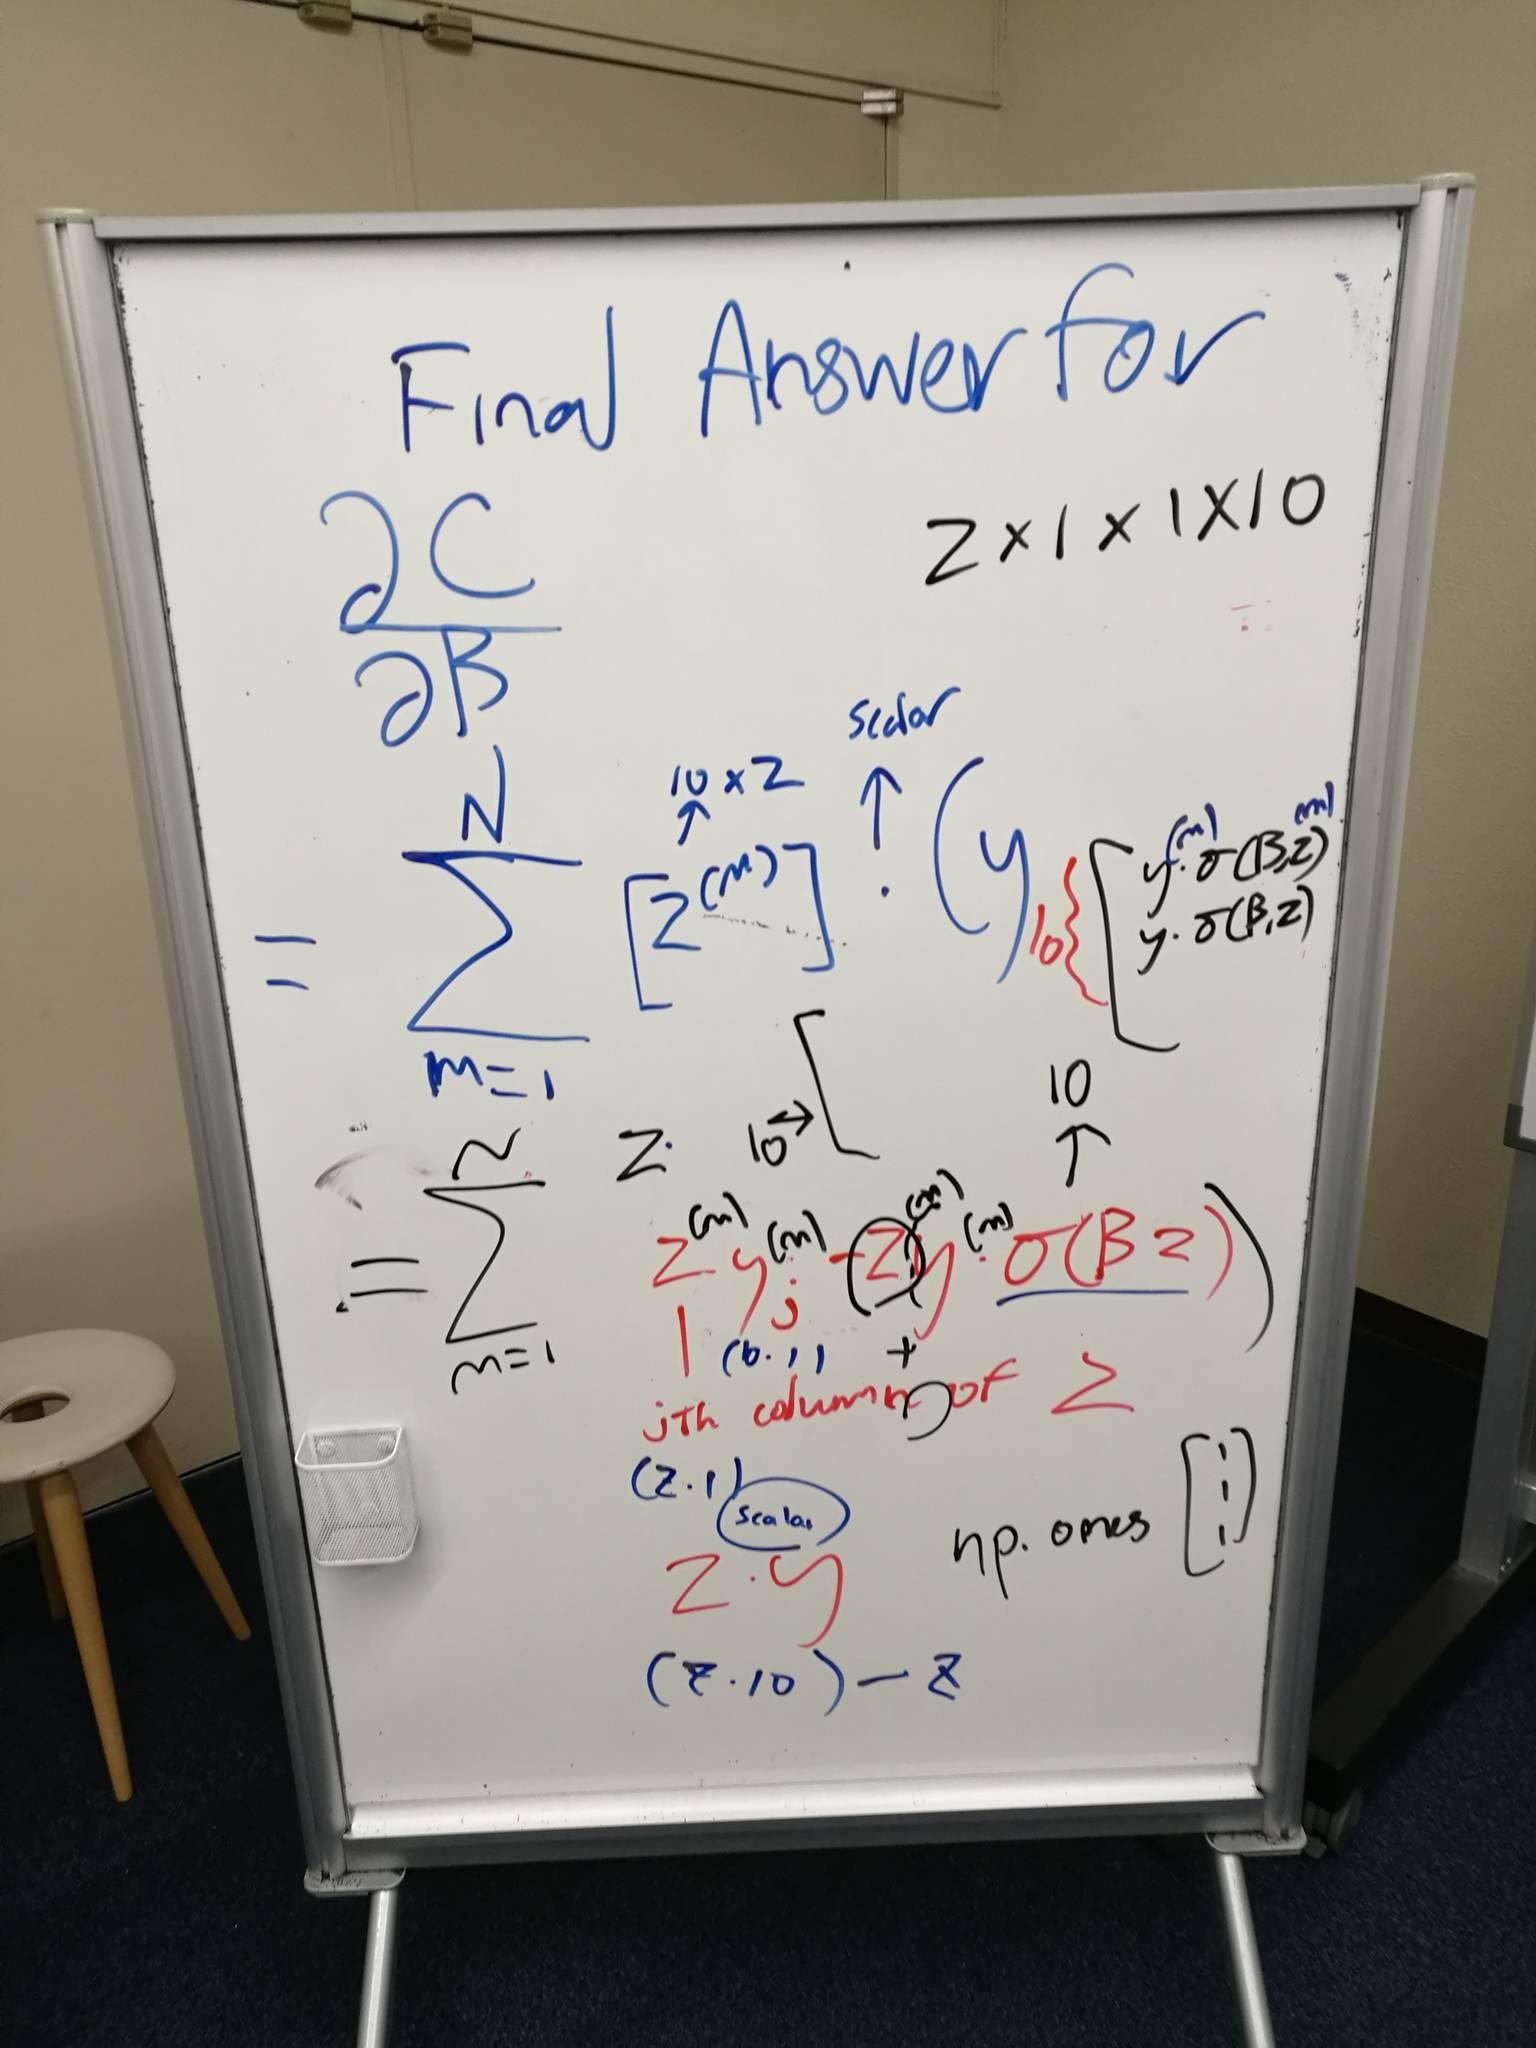 Final Answer for
∂C
∂B
2 x 1 x 1 x 10
scalar
10 x 2
N
= Σ [Z^(m)] · (y
m=1
10
y^(m)·σ(B,z)^(m)
y·σ(B,z)
10
N
Z·
10 →
= Σ Z^(m) y_j^(m) - Z^(m) y^(m)·σ(B z))
m=1
+
jth column of Z
(z.1)
scalar
Z.y
np.ones [1 1 1]
(z.10) - z